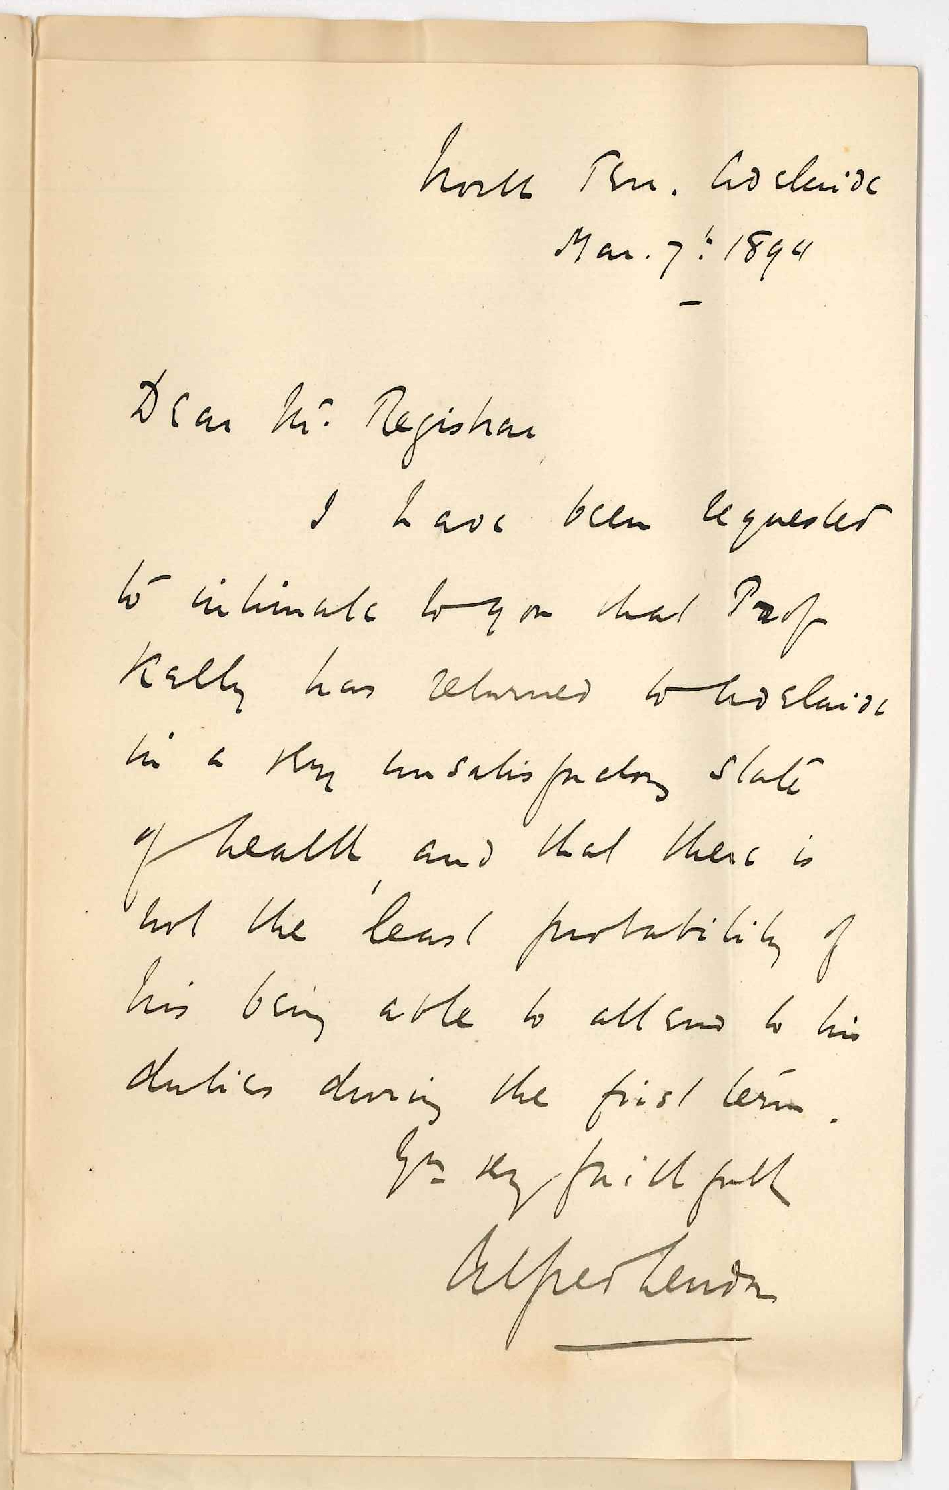 North Terr. Adelaide
Mar. 7th 1894
Dear Mr. Registrar
I have been requested
to intimate to you that Prof
Kelly has returned to Adelaide
in a very unsatisfactory state
of health, and that there is
not the least probability of
his being able to attend to his
duties during the first term.
Yrs very faithfully
Alfred Lendon